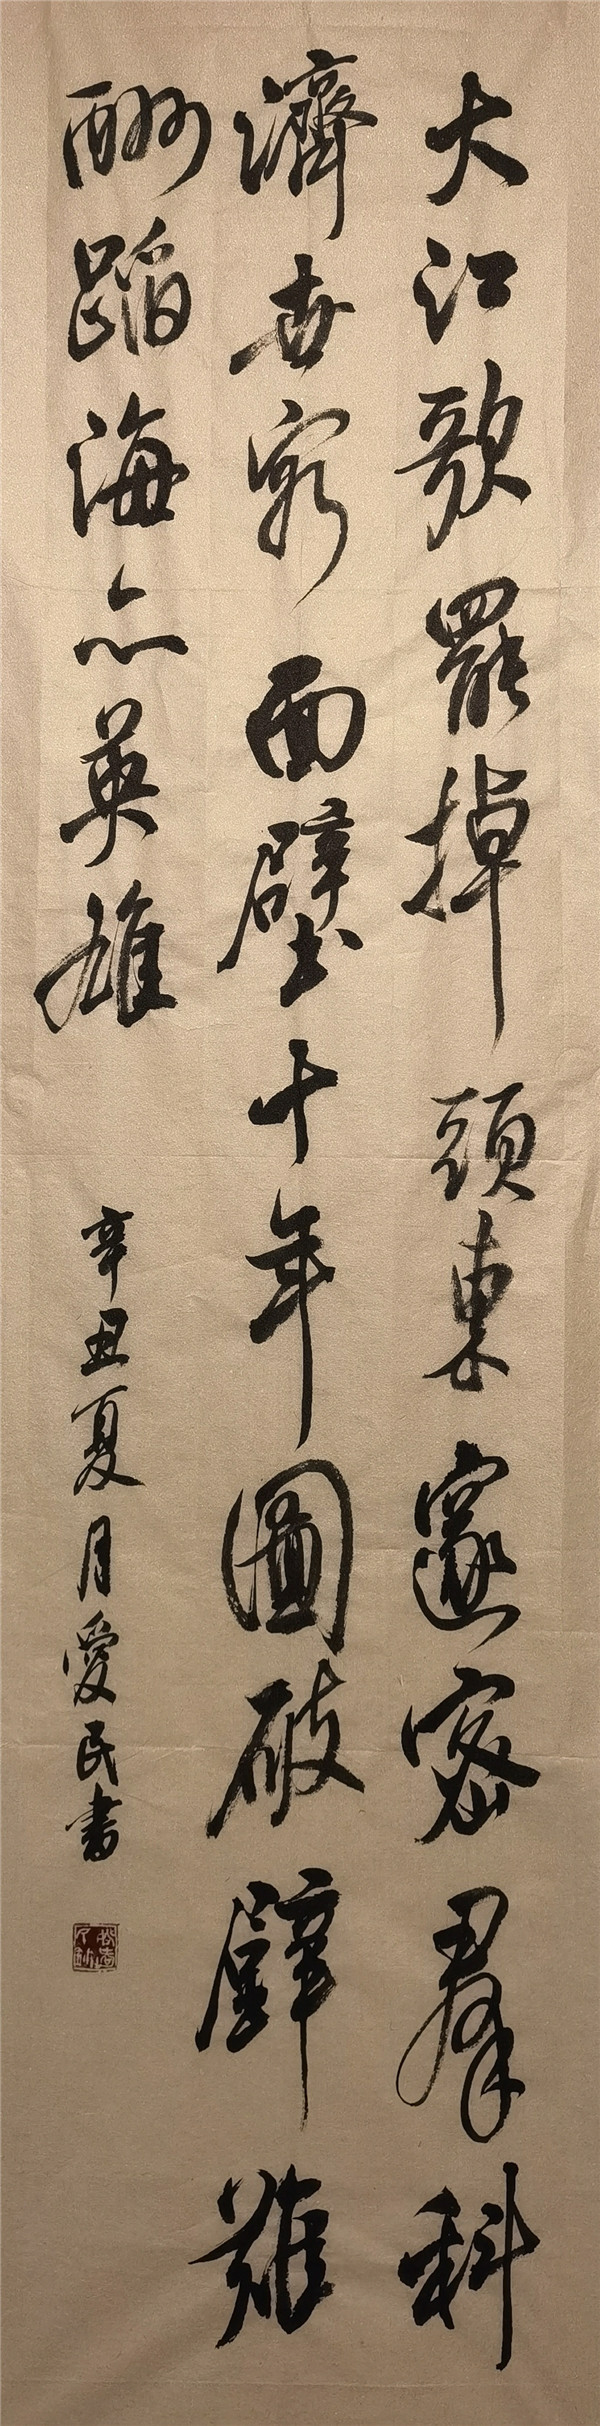 大江歌罷掉頭東邃密群科
濟世窮面壁十年圖破壁難
酬蹈海亦英雄
辛丑夏月愛民書